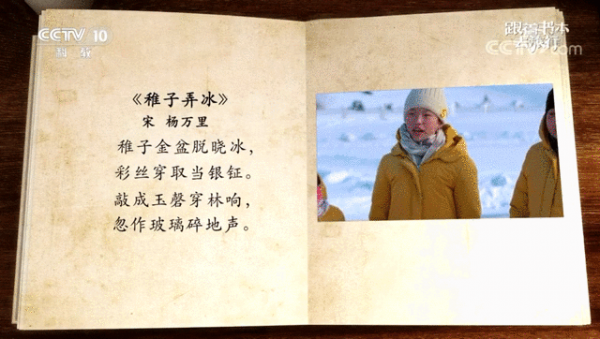 CCTV 10
科教
跟着书本
去旅行
CCTV.com
《稚子弄冰》
宋 杨万里
稚子金盆脱晓冰,
彩丝穿取当银钲。
敲成玉磬穿林响,
忽作玻璃碎地声。